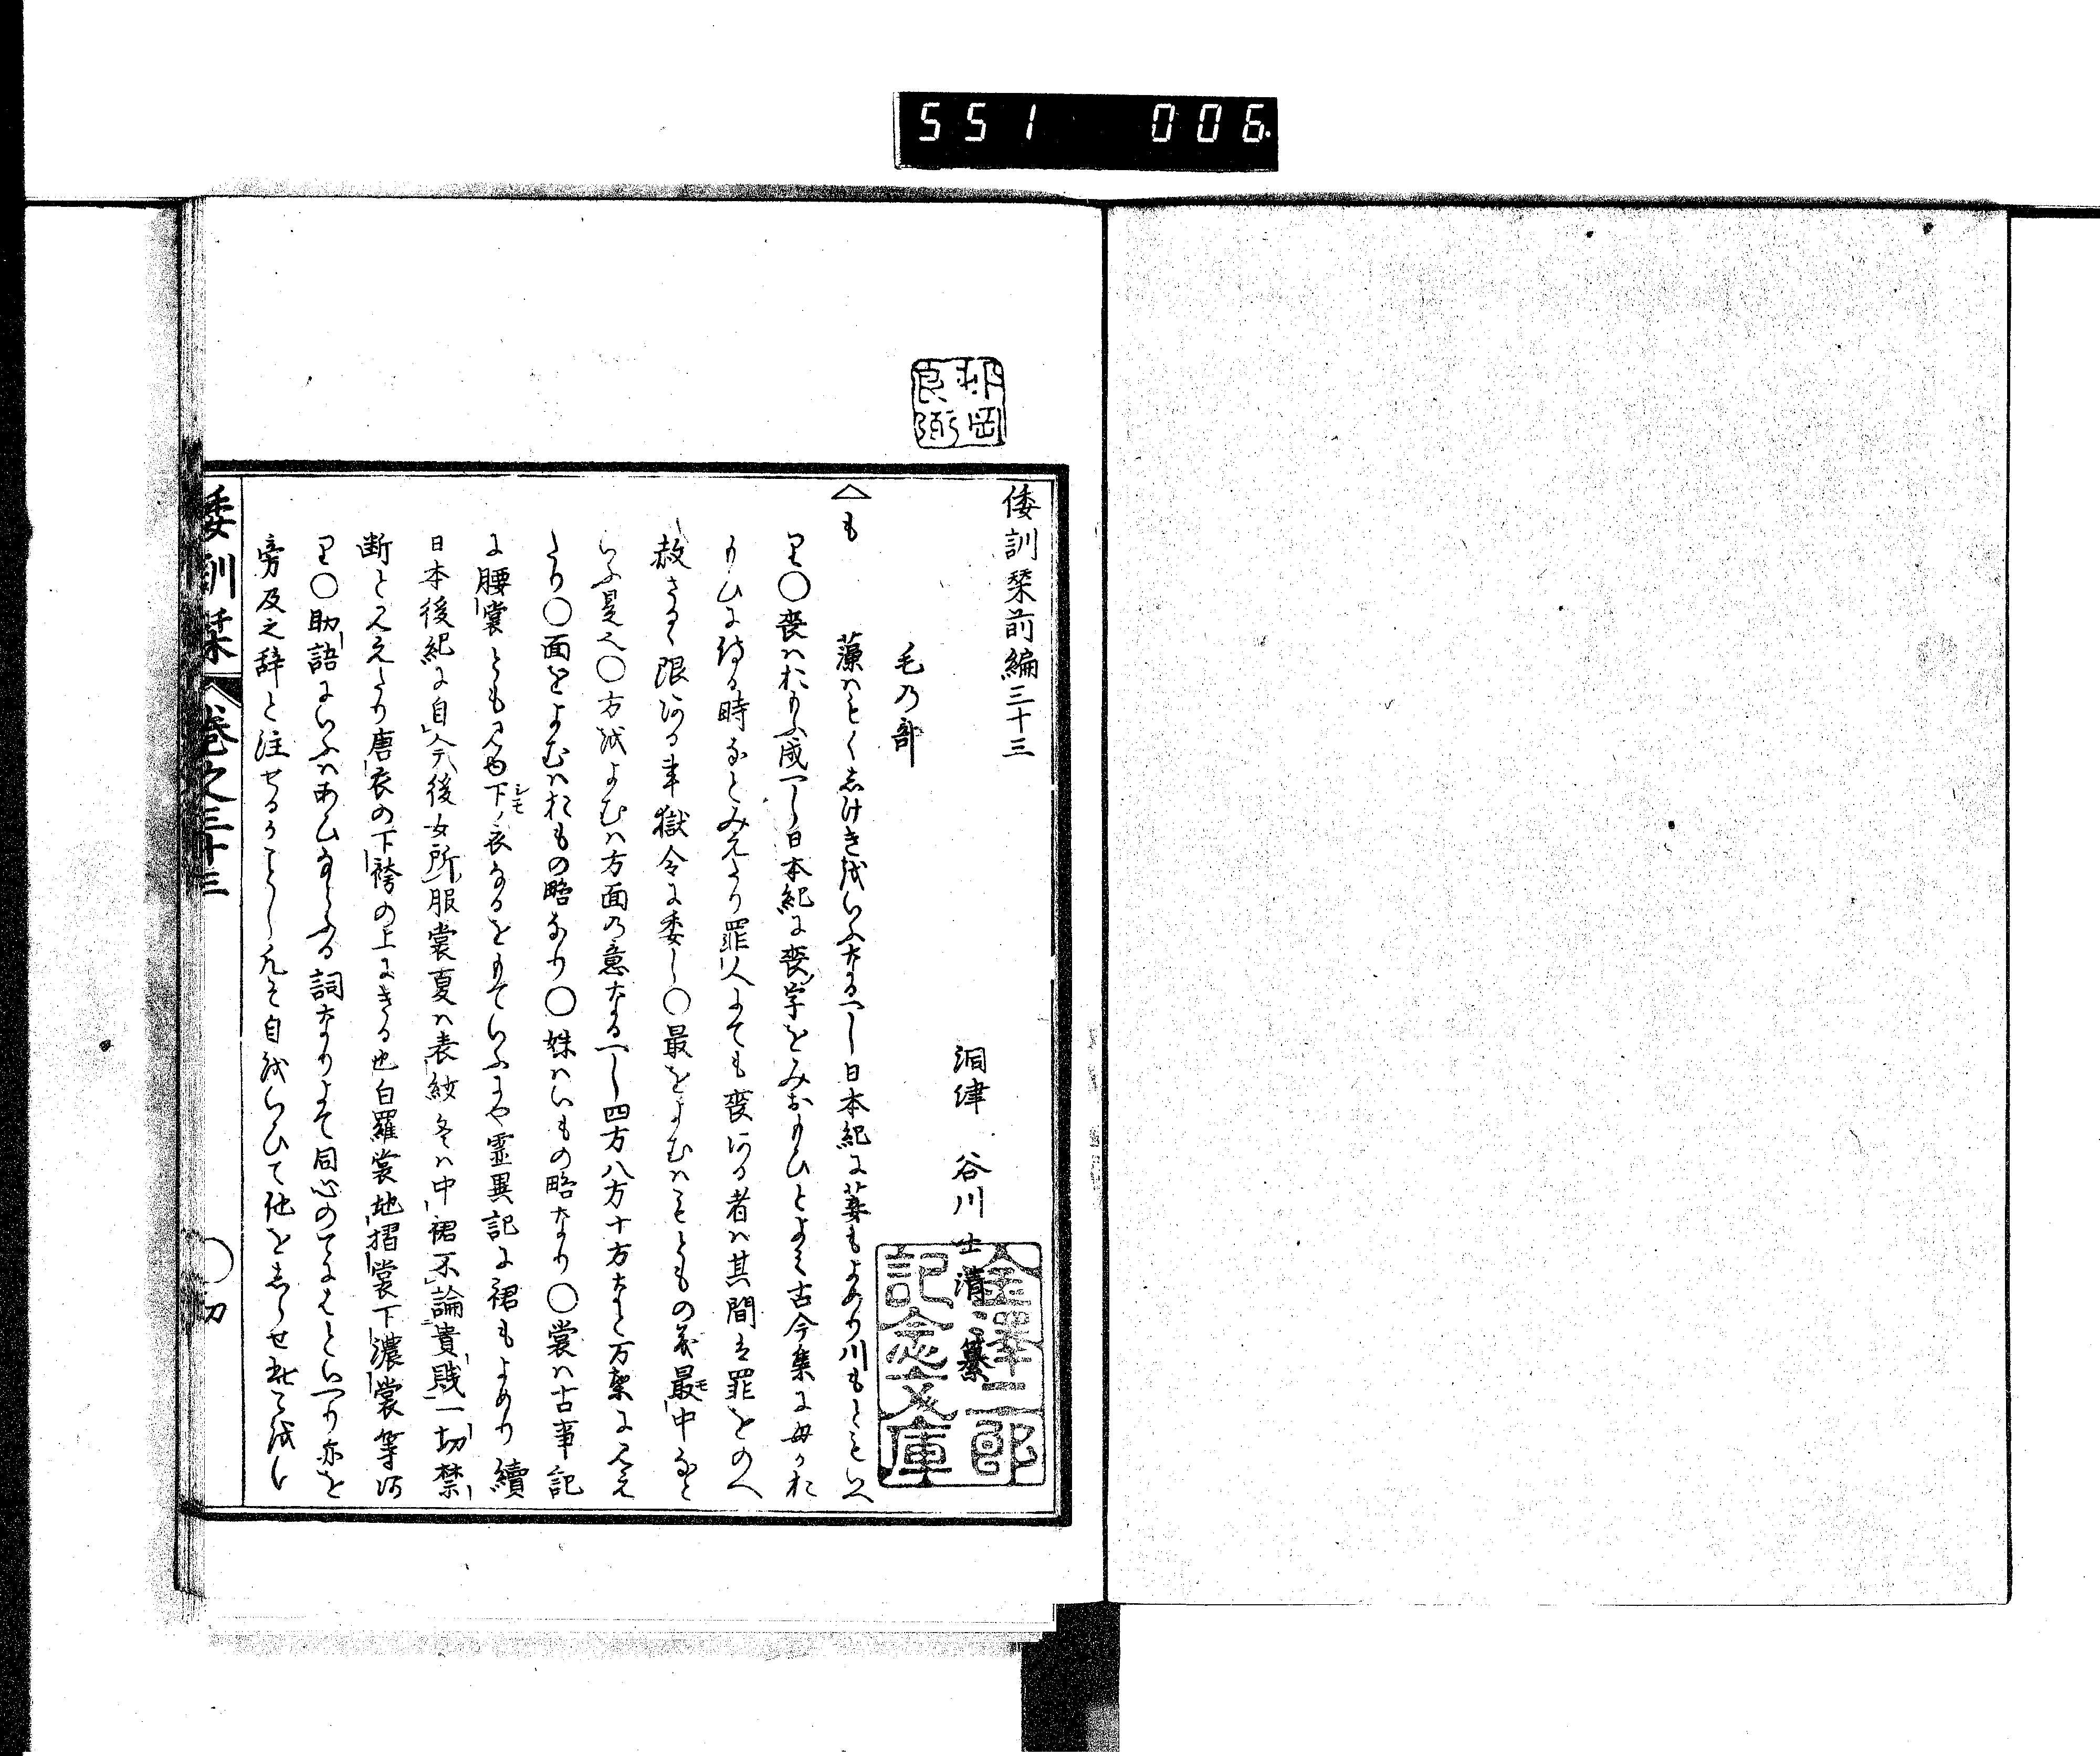 551 006
倭訓栞前編三十三
洞津 谷川士清 纂
毛乃部
△も
藻はもくしけき成いふなるへし日本紀に葉もよめり川もともいへ
り○喪はおもふ成へし日本紀に喪字をみおもひとよみ古今集に母かお
もひに侍る時なとみえたり罪人にても喪ある者は其間は罪をのへ
赦さるゝ限ある事獄令に委し○最をよむはもともの義最中なと
いふ是也○方をよむは方面の意なるへし四方八方十方なと万葉にみえ
たり○面をよむはおもの略なり○妹はいもの略なり○裳は古事記
に腰裳とも見ゆ下ノ衣なるをもていふにや霊異記に裙もよめり續
日本後紀に自今後女所服裳夏ハ表紗冬ハ中裙不論貴賤一切禁
断とみえたり唐衣の下袴の上にきる也白羅裳地摺裳下濃裳等あ
り○助語にいふはあひましふる詞なりよて同心のてにはといへり亦を
旁及之辞と注せるかことし凡そ自をいひて他をしらせ
倭訓栞 巻之三十三
○初
金澤二郎
記念文庫
岡
良弼